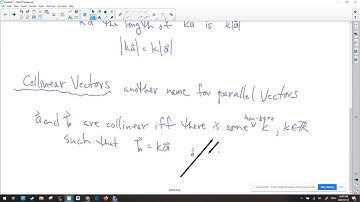 ka the length of ka is
|ka⃗| = k|a⃗|
Collinear Vectors another name for parallel Vectors
non-zero
a⃗ and b⃗ are collinear iff there is some k, k∈ℝ
such that b⃗ = ka⃗
a⃗